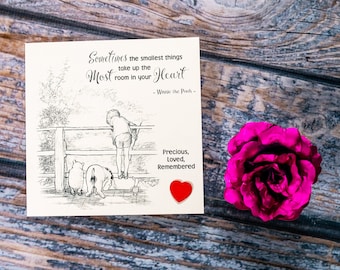 Sometimes the smallest things
take up the
Most room in your Heart
- Winnie the Pooh -
Precious,
Loved,
Remembered